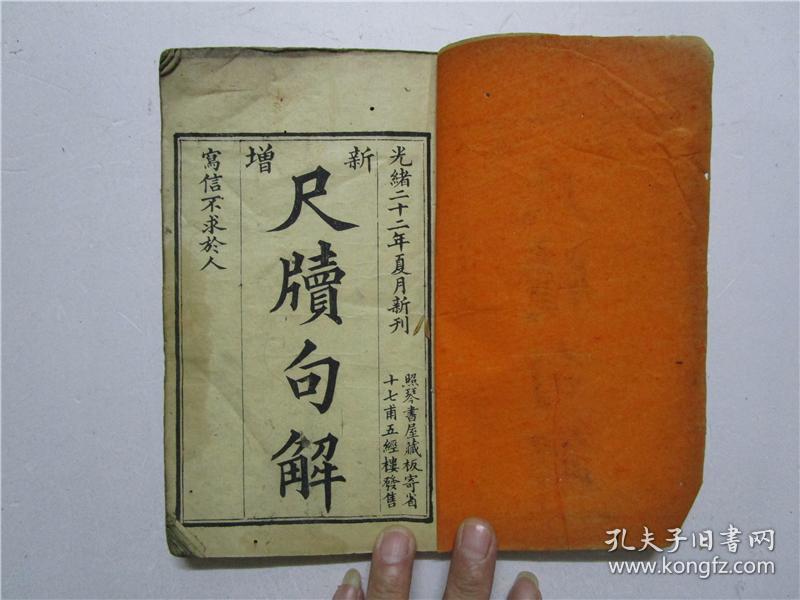 光緒二十二年夏月新刊
照琴書屋藏板寄省
十七甫五經樓發售
新增
尺牘句解
寫信不求於人
孔夫子旧书网
www.kongfz.com